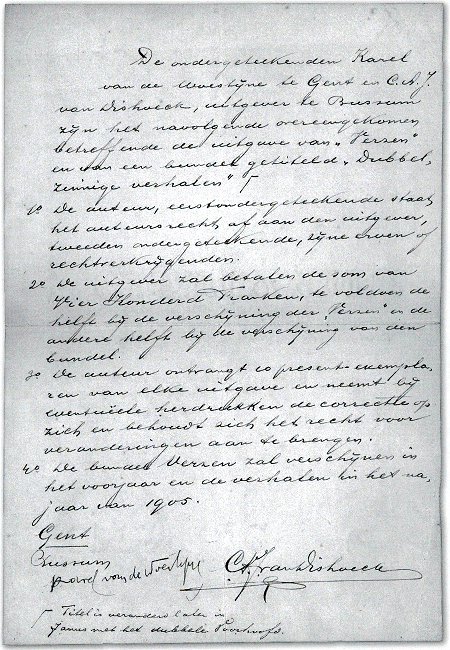 De ondergeteekenden Karel
van de Woestijne te Gent en C.A.J.
van Dishoeck, uitgever te Bussum
zijn het navolgende overeengekomen
betreffende de uitgave van "Verzen"
en van een bundel getiteld "Dubbel-
zinnige verhalen" ⌈
1o De auteur, eerstondergeteekende staat
het auteursrecht af aan den uitgever,
tweeden ondergeteekende, zijne erven of
rechtverkrijgenden.
2o De uitgever zal betalen de som van
Vier Honderd Franken, te voldoen de
helft bij de verschijning der "Verzen" en de
andere helft bij de verschijning van den
bundel.
3o De auteur ontvangt 10 present-exempla-
ren van elke uitgave en neemt bij
eventuëele herdrukken de correctie op
zich en behoudt zich het recht voor
veranderingen aan te brengen.
4o De bundel Verzen zal verschijnen in
het voorjaar en de verhalen in het na-
jaar van 1905.
Gent
Bussum
Karel van de Woestijne C.A.J. van Dishoeck
⌈ Titel is veranderd later in
Janus met het dubbele Voorhoofd.